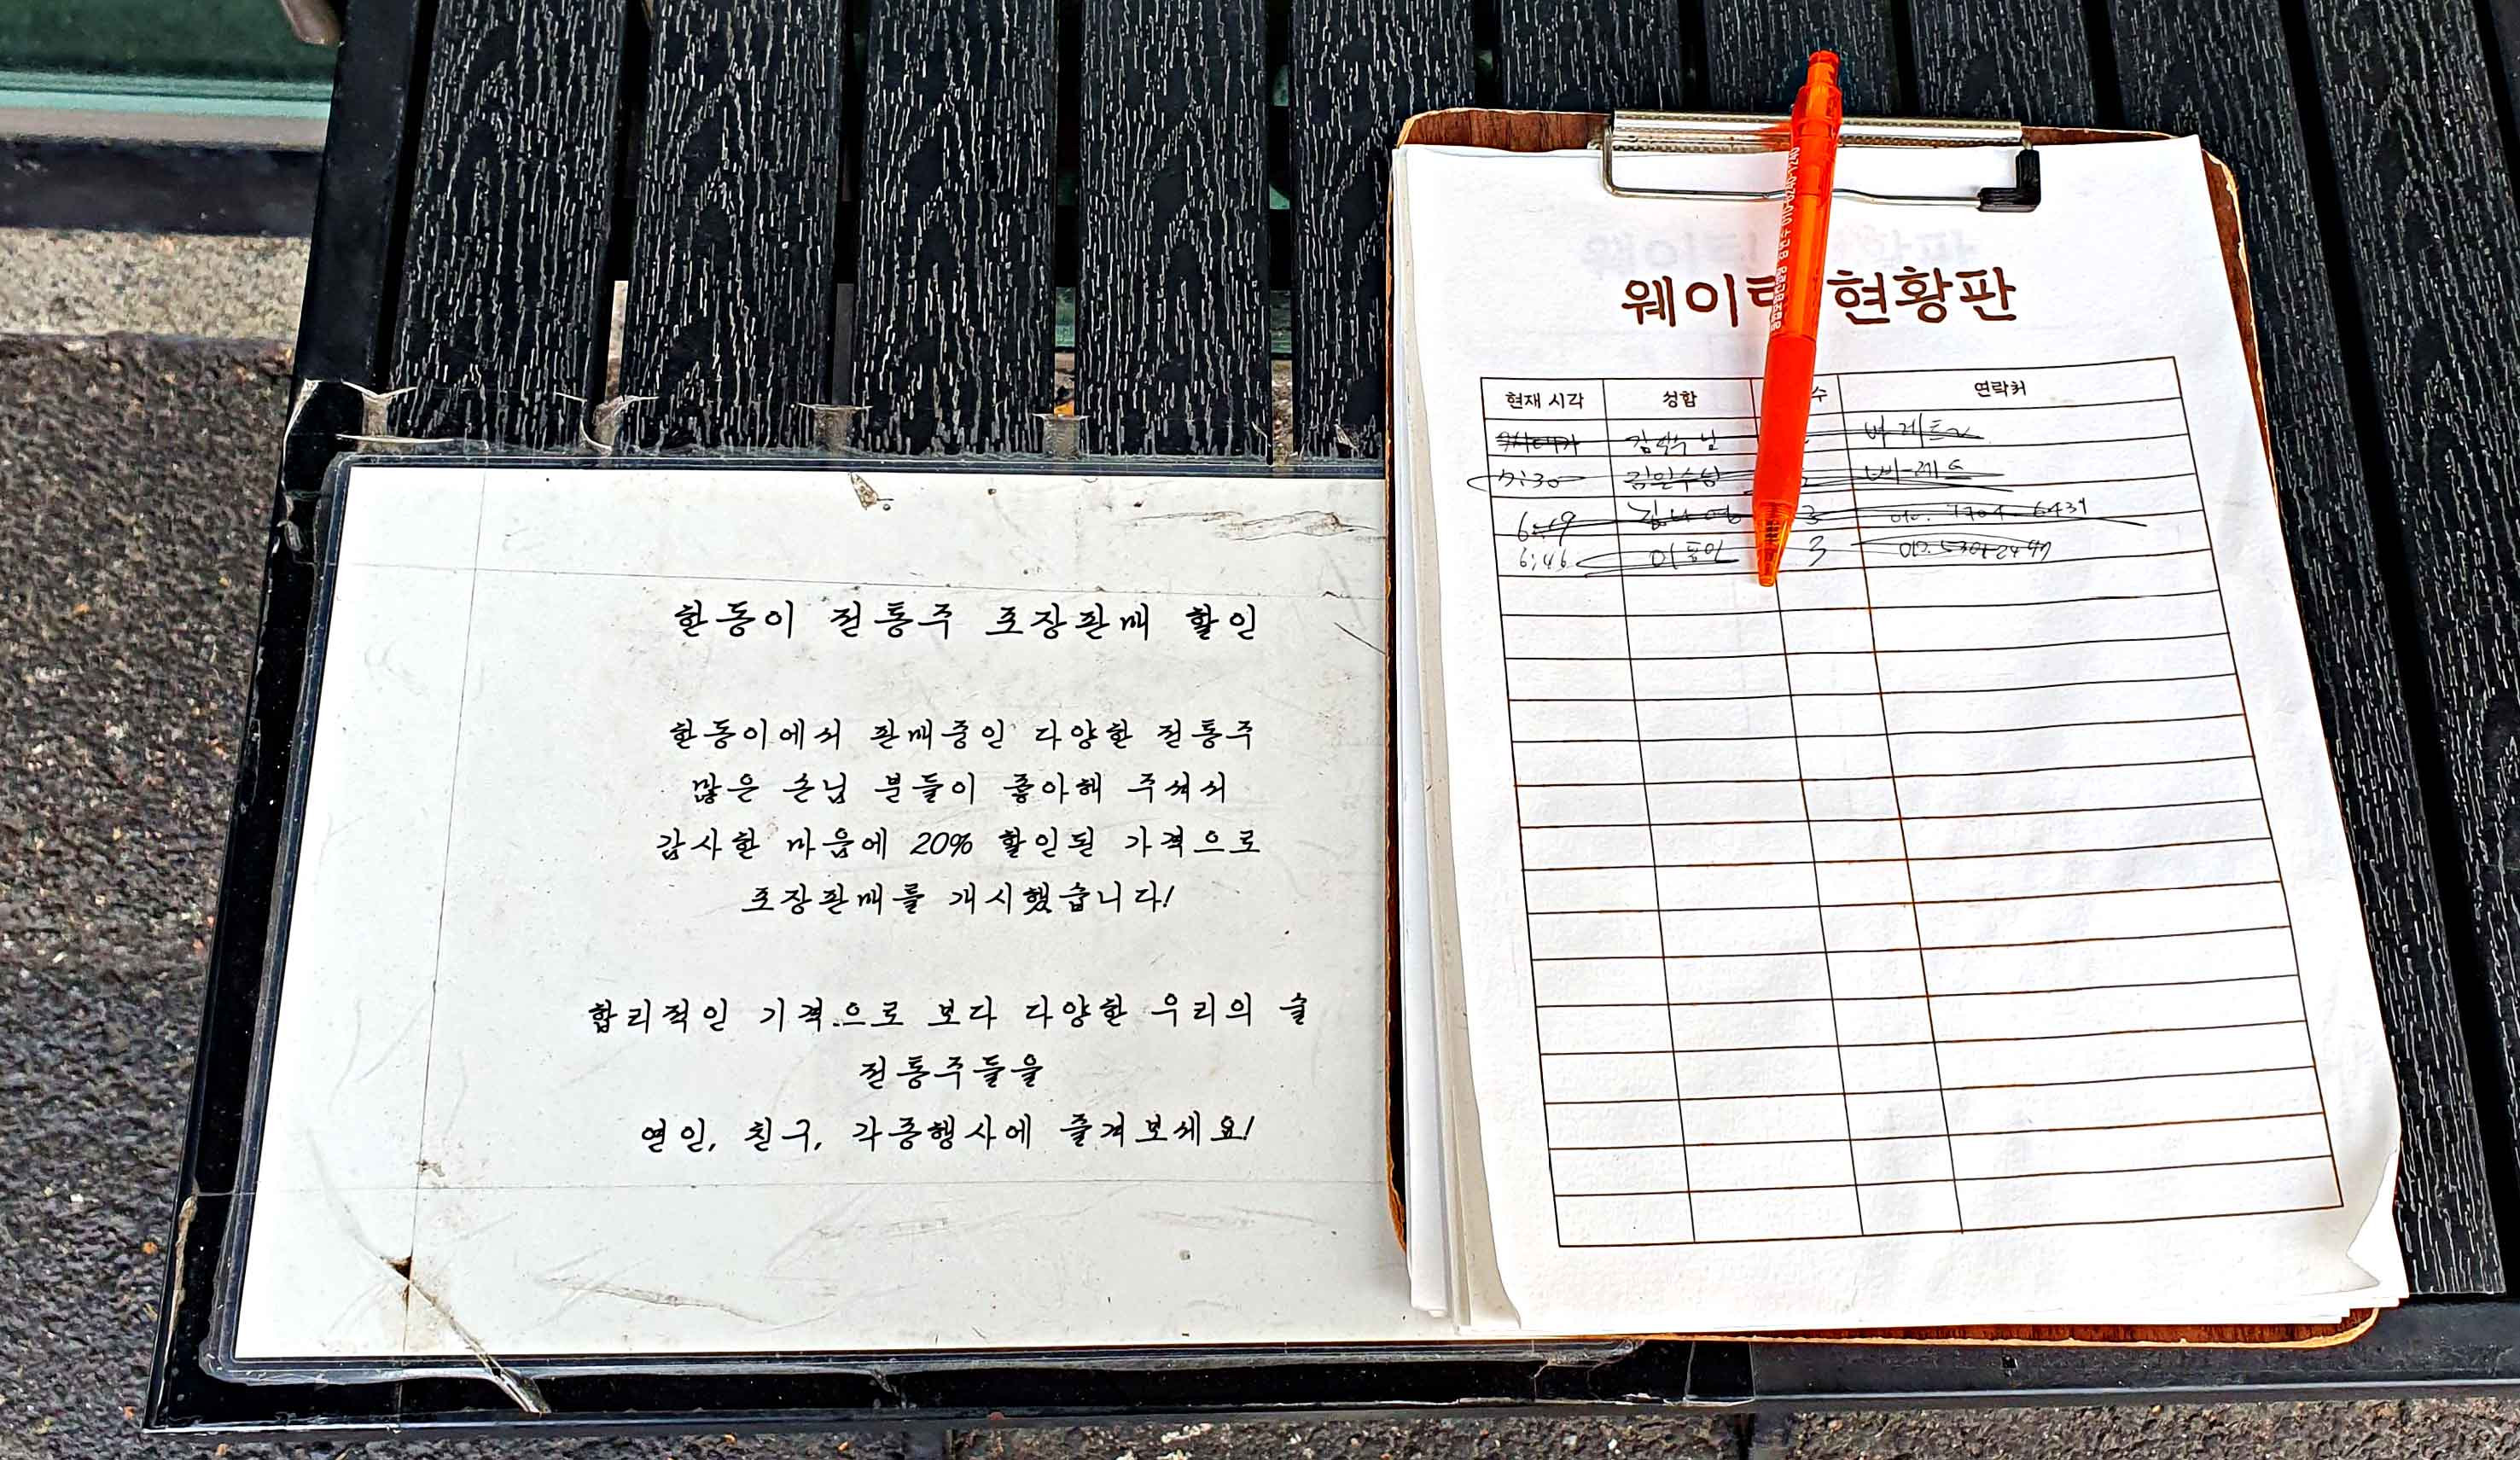 한동이 전통주 포장판매 할인
한동이에서 판매중인 다양한 전통주
많은 손님 분들이 좋아해 주셔서
감사한 마음에 20% 할인된 가격으로
포장판매를 개시했습니다!
합리적인 기격으로 보다 다양한 우리의 술
전통주들을
연인, 친구, 각종행사에 즐겨보세요!
웨이팅 현황판
현재 시각 성함 수 연락처
7:30
6:49 3
6:46 3